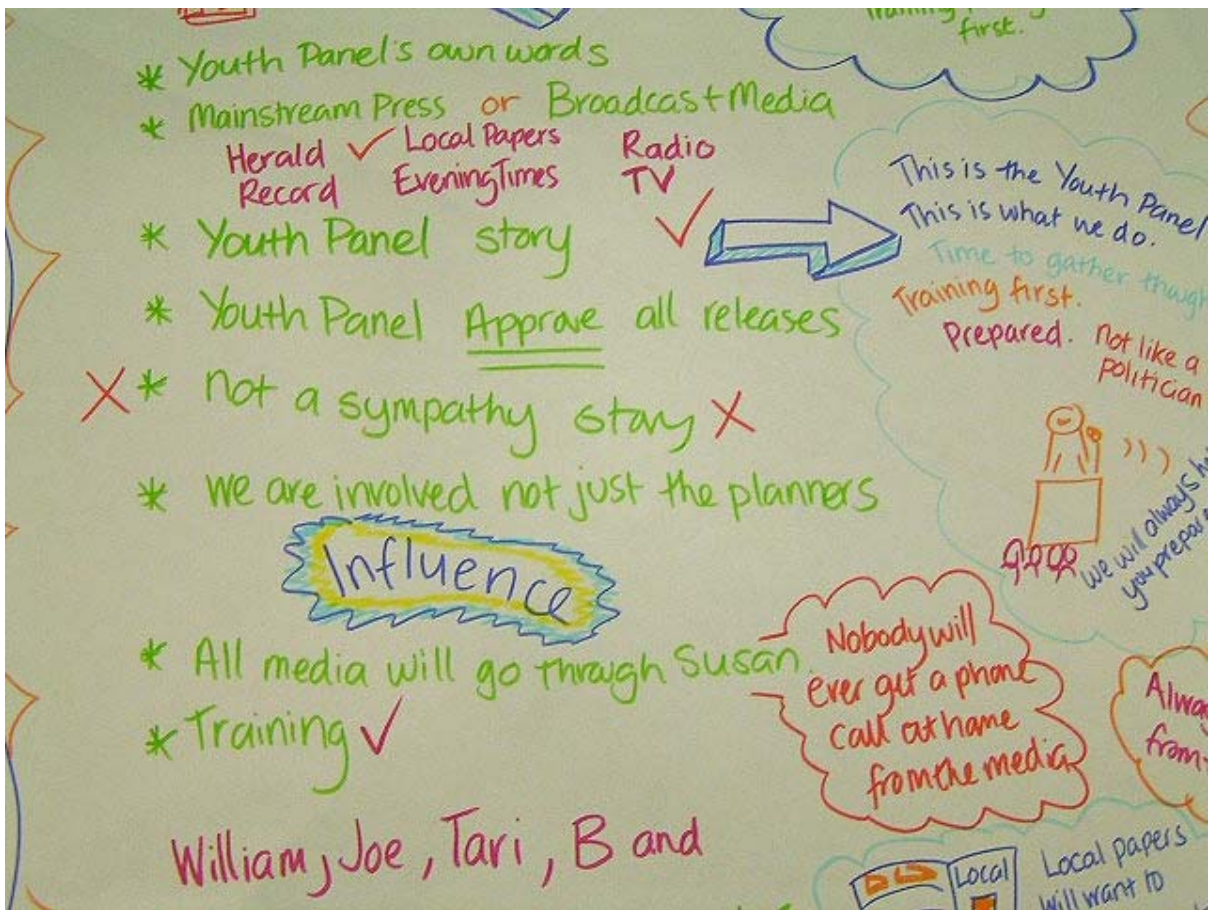 first.
* Youth Panel's own words
* Mainstream Press or Broadcast Media
Herald ✓ Local Papers Radio
Record Evening Times TV ✓
* Youth Panel story
* Youth Panel Approve all releases
X * not a sympathy story X
* we are involved not just the planners
Influence
* All media will go through Susan.
* Training ✓
William, Joe, Tari, B and
This is the Youth Panel
This is what we do.
Time to gather
Training first.
Prepared. not like a
politician
we will always
you
Nobody will
ever get a phone
call at home
from the media
from
Local
Local papers
will want to